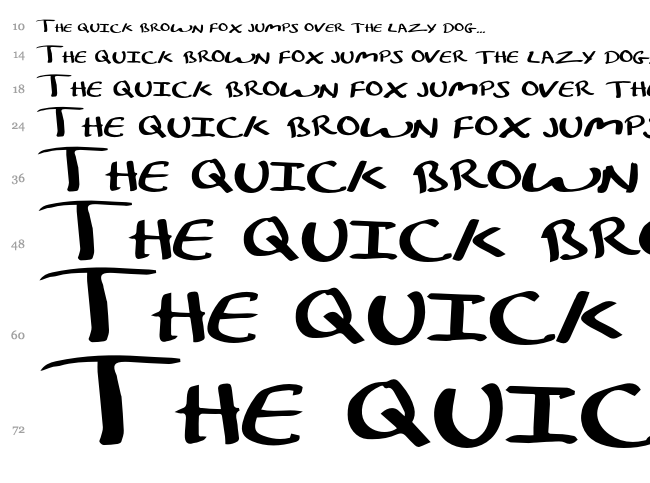 10 The quick brown fox jumps over the lazy dog...
14 The quick brown fox jumps over the lazy dog.
18 The quick brown fox jumps over th
24 The quick brown fox jumps
36 The quick brown
48 The quick bro
60 The quick
72 The quic